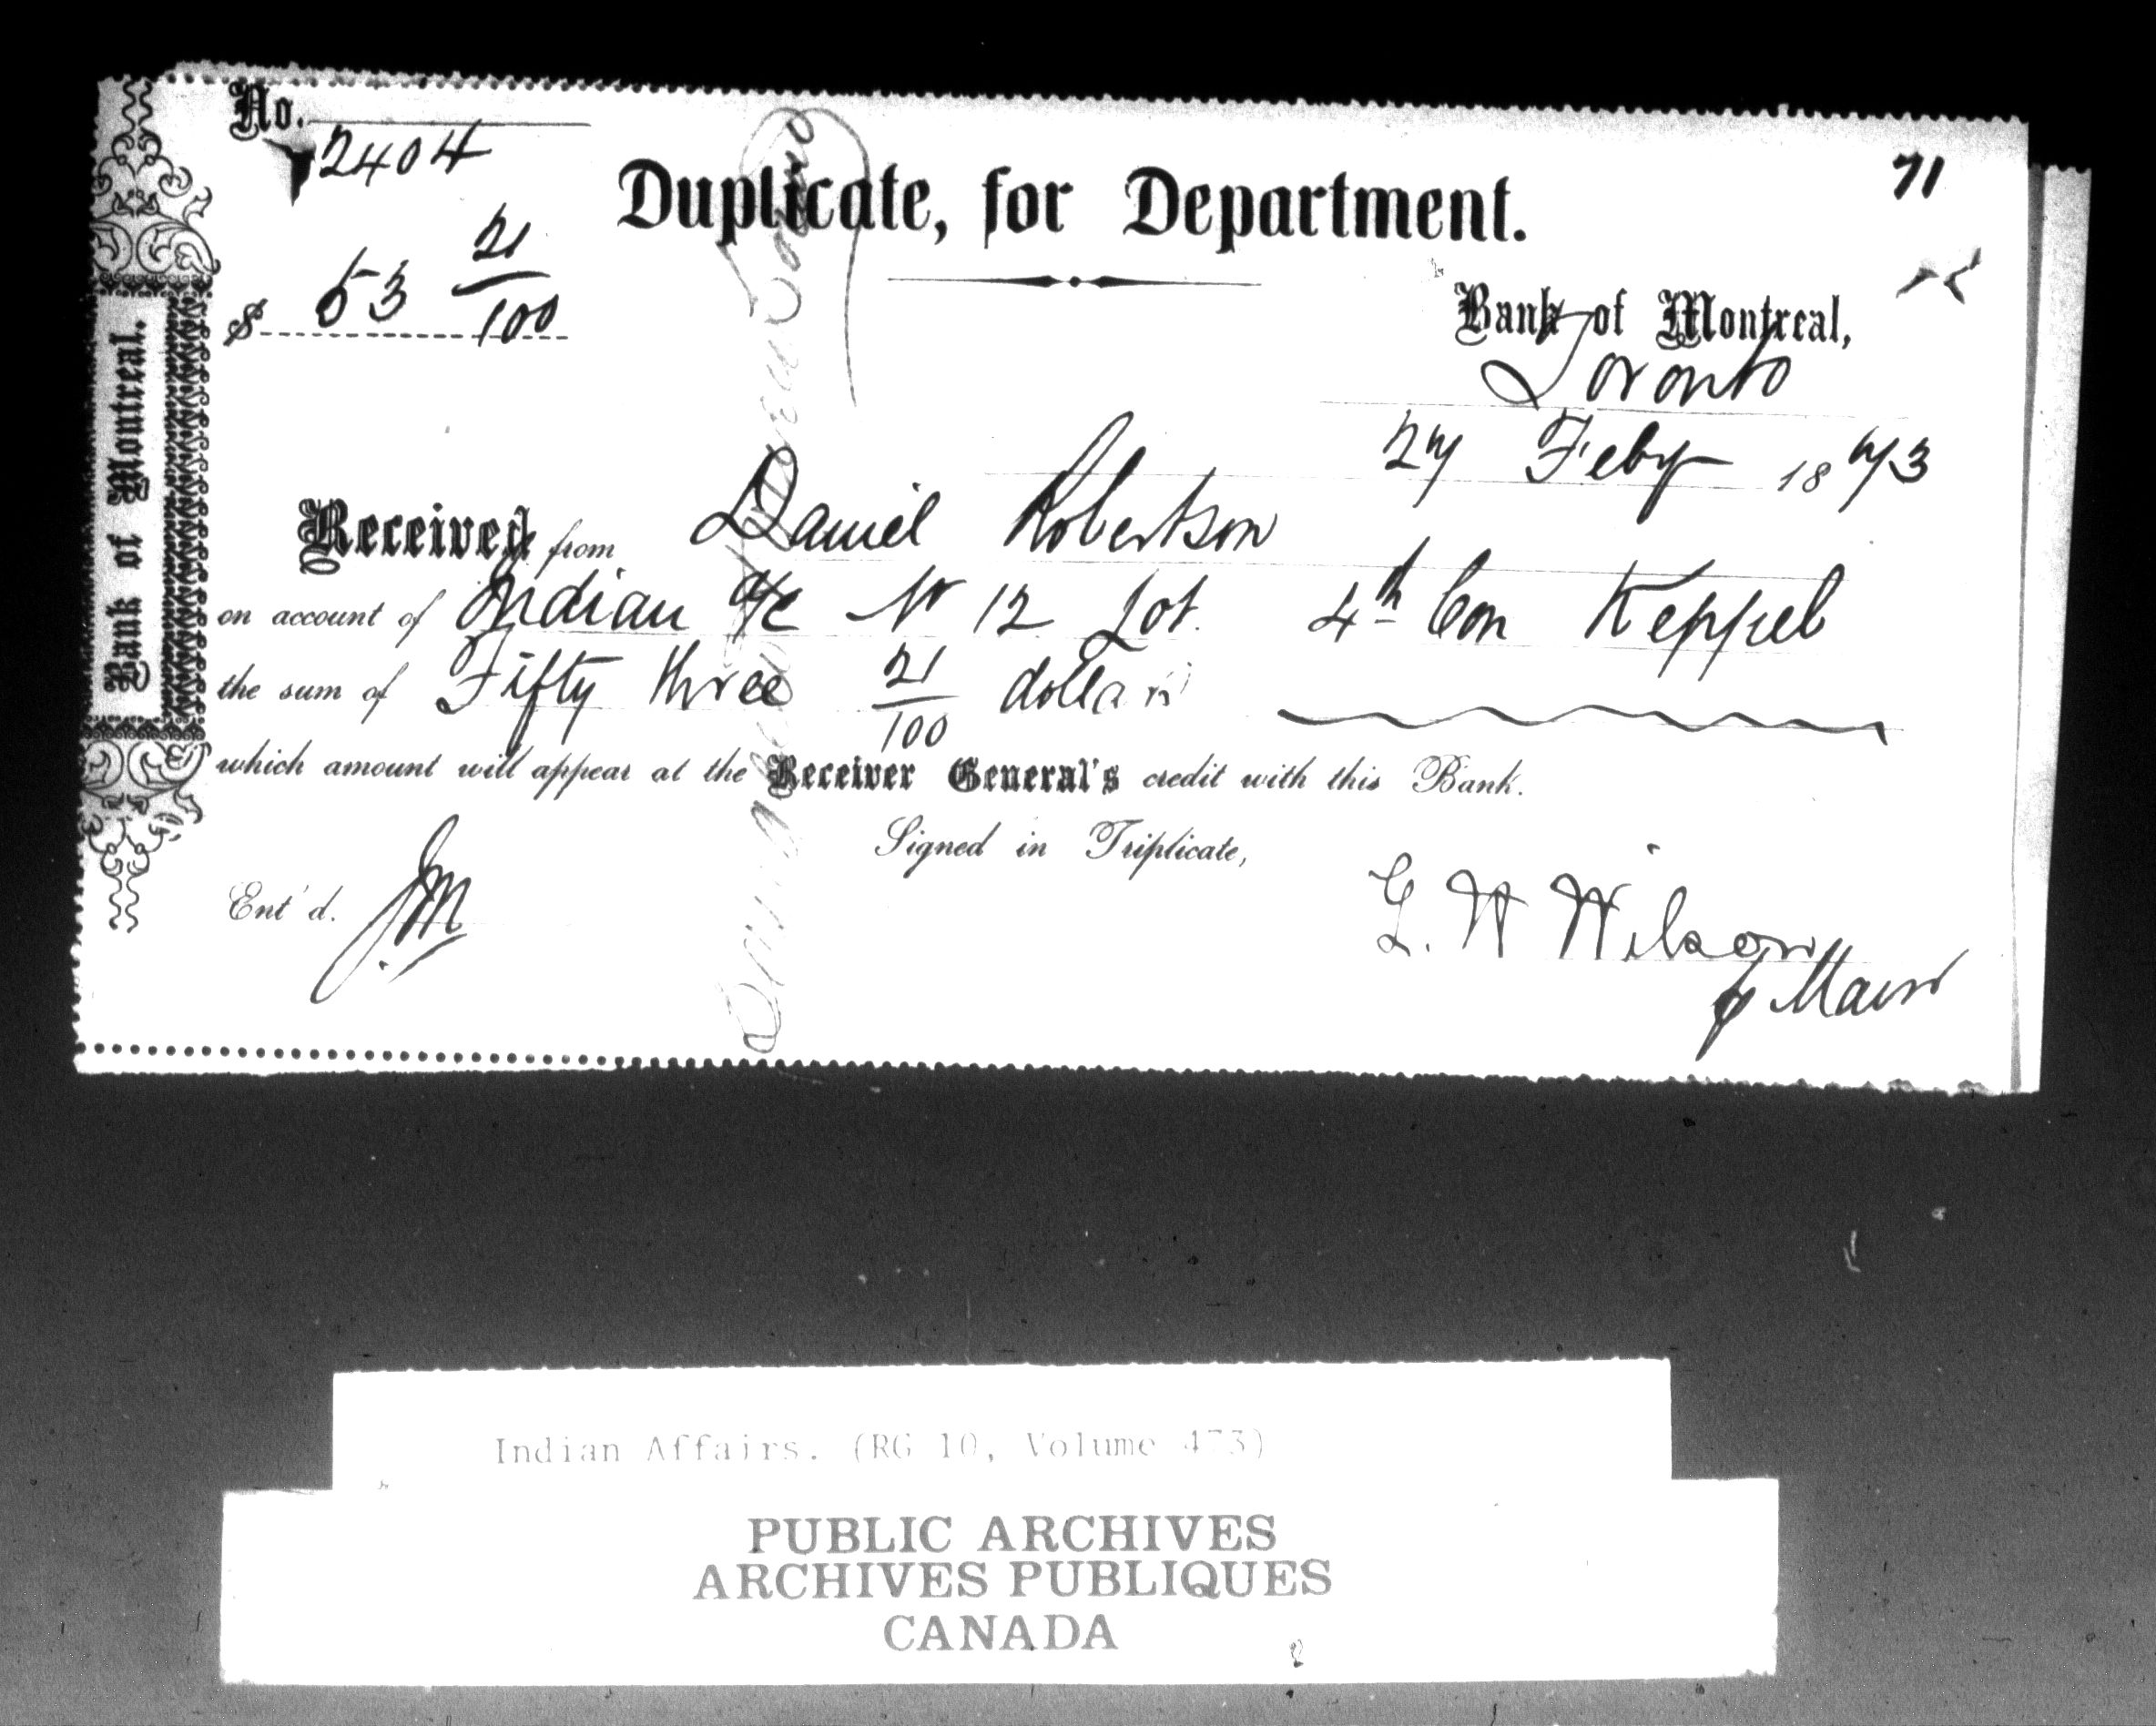 No. 2404
71
Duplicate, for Department.
$ 53 21/100
Bank of Montreal,
Toronto
27 Feby 1873
Received from Daniel Robertson
on account of Indian a/c No 12 Lot. 4th Con Keppel
the sum of Fifty three 21/100 dollars
which amount will appear at the Receiver General's credit with this Bank.
Signed in Triplicate,
Ent'd. JM
G. W Wilson
Bank of Montreal.
Indian Affairs. (RG 10, Volume 473)
PUBLIC ARCHIVES
ARCHIVES PUBLIQUES
CANADA